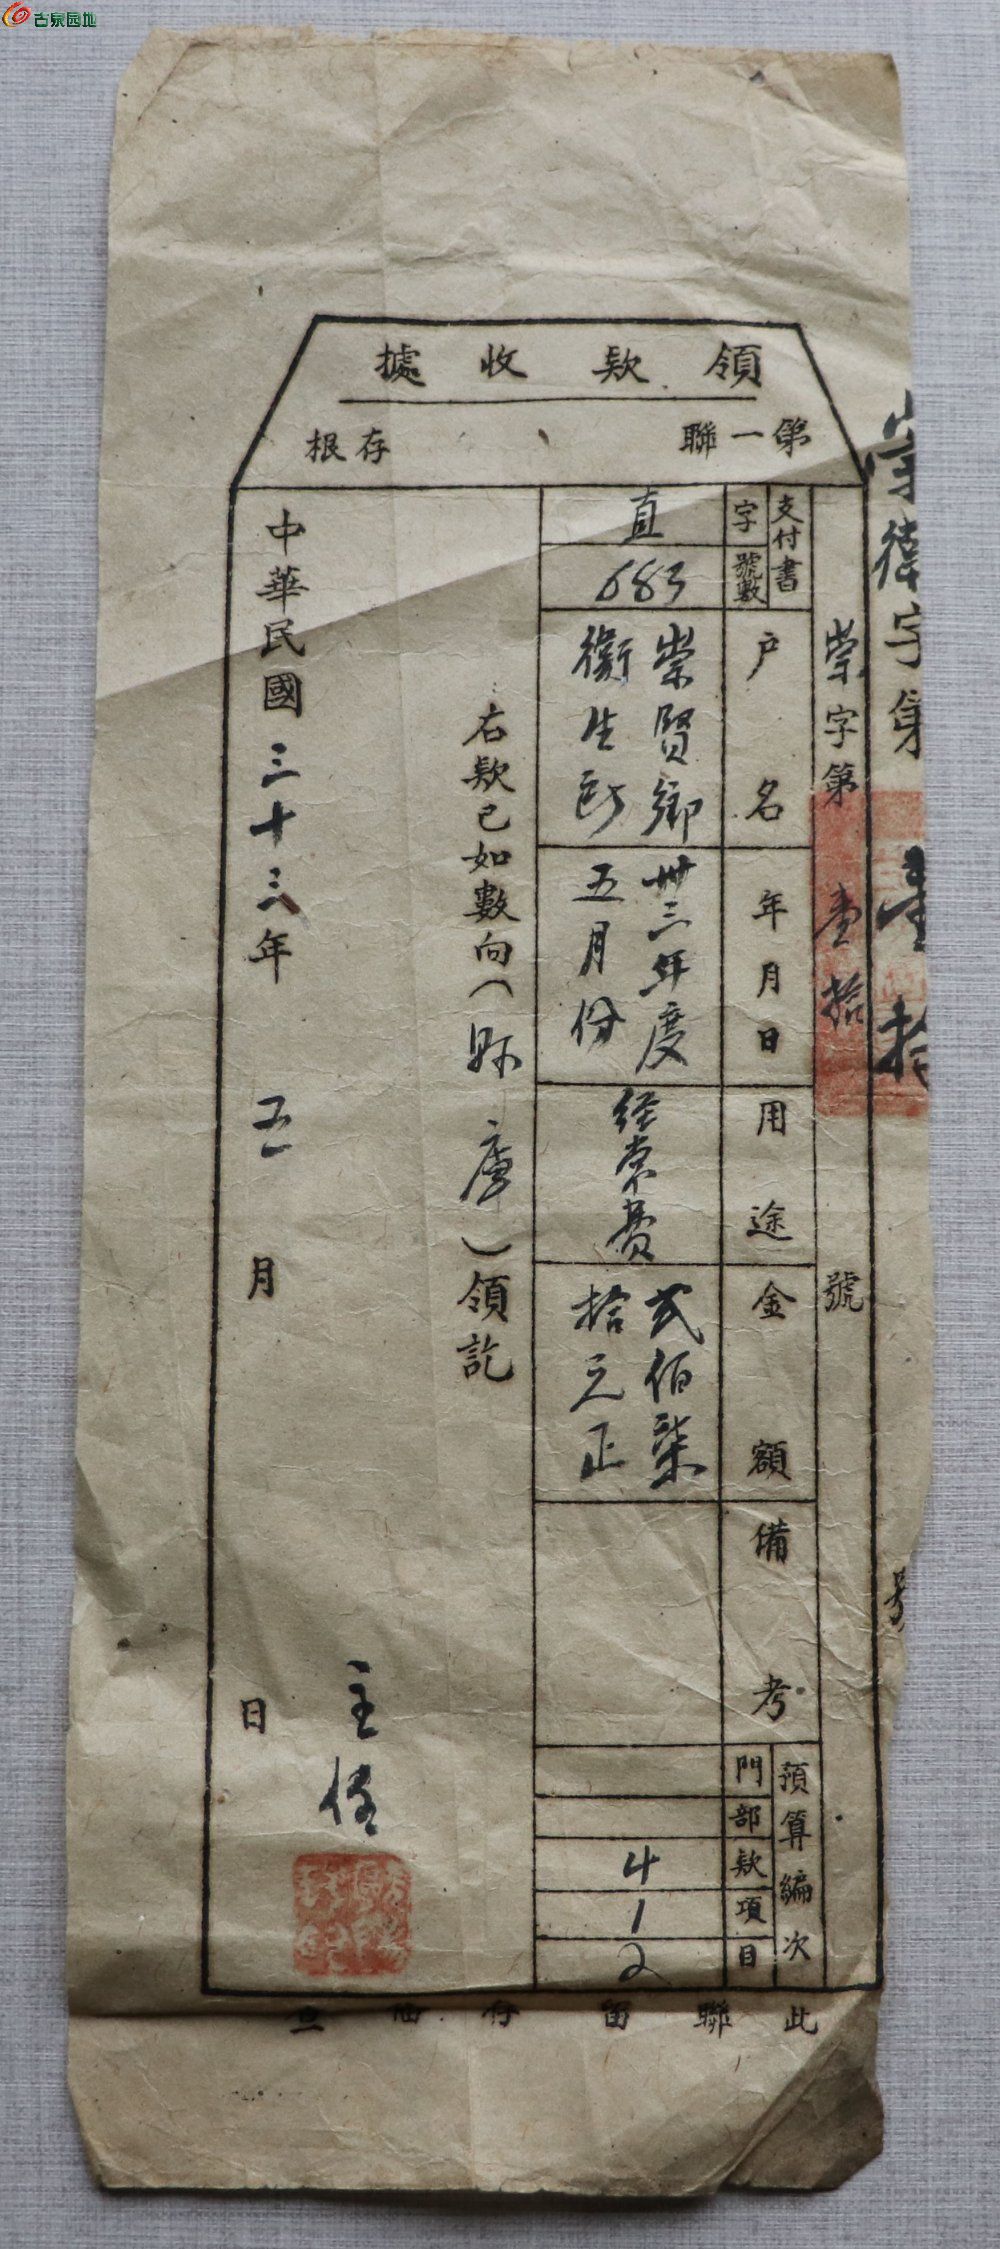 古泉园地
領款收據
第一聯 存根
崇衛字第壹拾號
崇字第壹拾號
支付書
字 直
號數 683
戶名 崇賢鄉衛生所
年月日 卅三年度五月份
用途 經常費
金額 弍佰柒拾元正
備考
預算編次
門
部
款 4
項 1
目 2
右款已如數向(縣庫)領訖
主任
中華民國三十三年五月 日
此聯留存備查